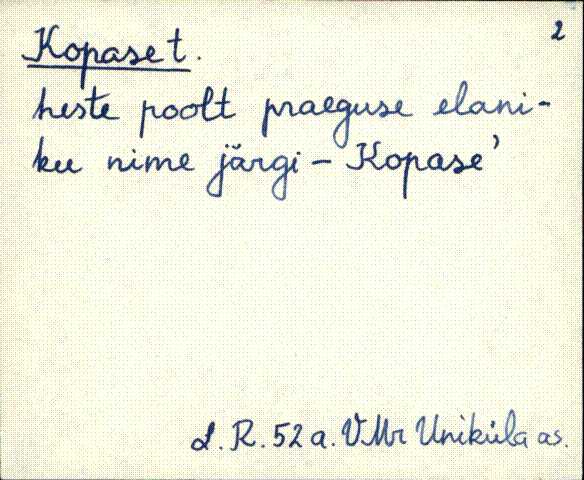 2
Kopase t.
heste poolt praeguse elani-
ku nime järgi – Kopase'
L. R. 52 a. VMr Uniküla as.